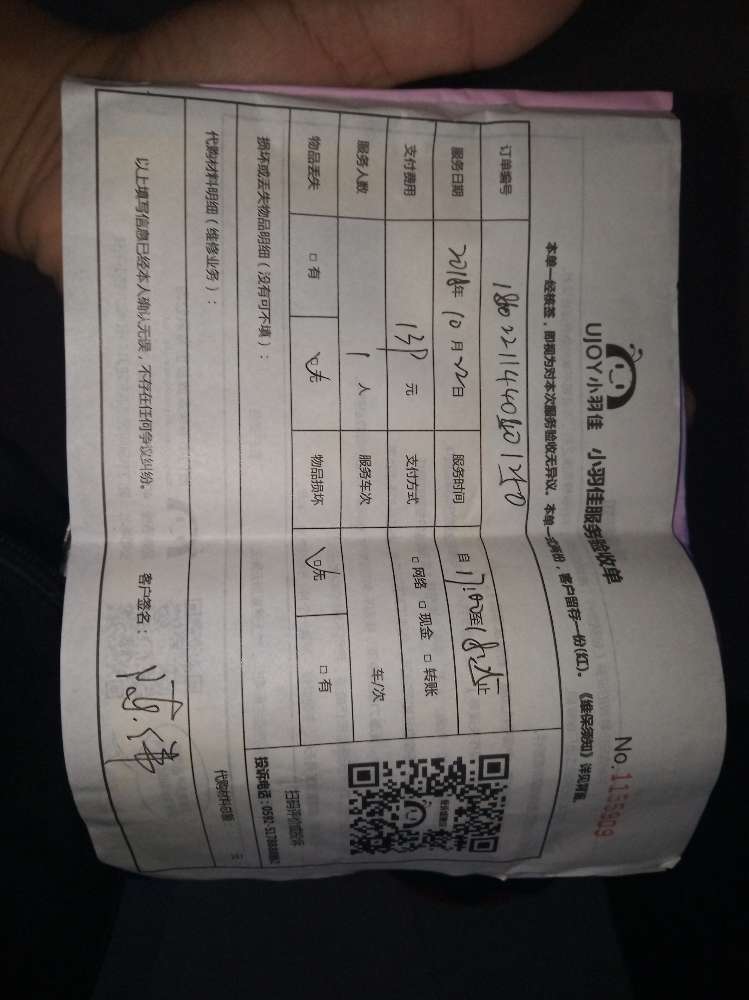 UJOY小羽佳 小羽佳服务验收单
No.1155909
本单一经核签,即视为对本次服务验收无异议。本单一式两份,客户留存一份(红)。《维保须知》详见背面
订单编号
服务日期 2018年10月22日 服务时间 自17:00至 止
支付费用 元 支付方式 □网络 □现金 □转账
服务人数 1人 服务车次 车/次
物品丢失 □有 □无 物品损坏 □无 □有
损坏或丢失物品明细(没有可不填):
代购材料明细(维修业务): 代购材料印象: 元
以上填写信息已经本人确认无误,不存在任何争议纠纷。 客户签名:
扫码评价或投诉
投诉电话:0592-5178888转2